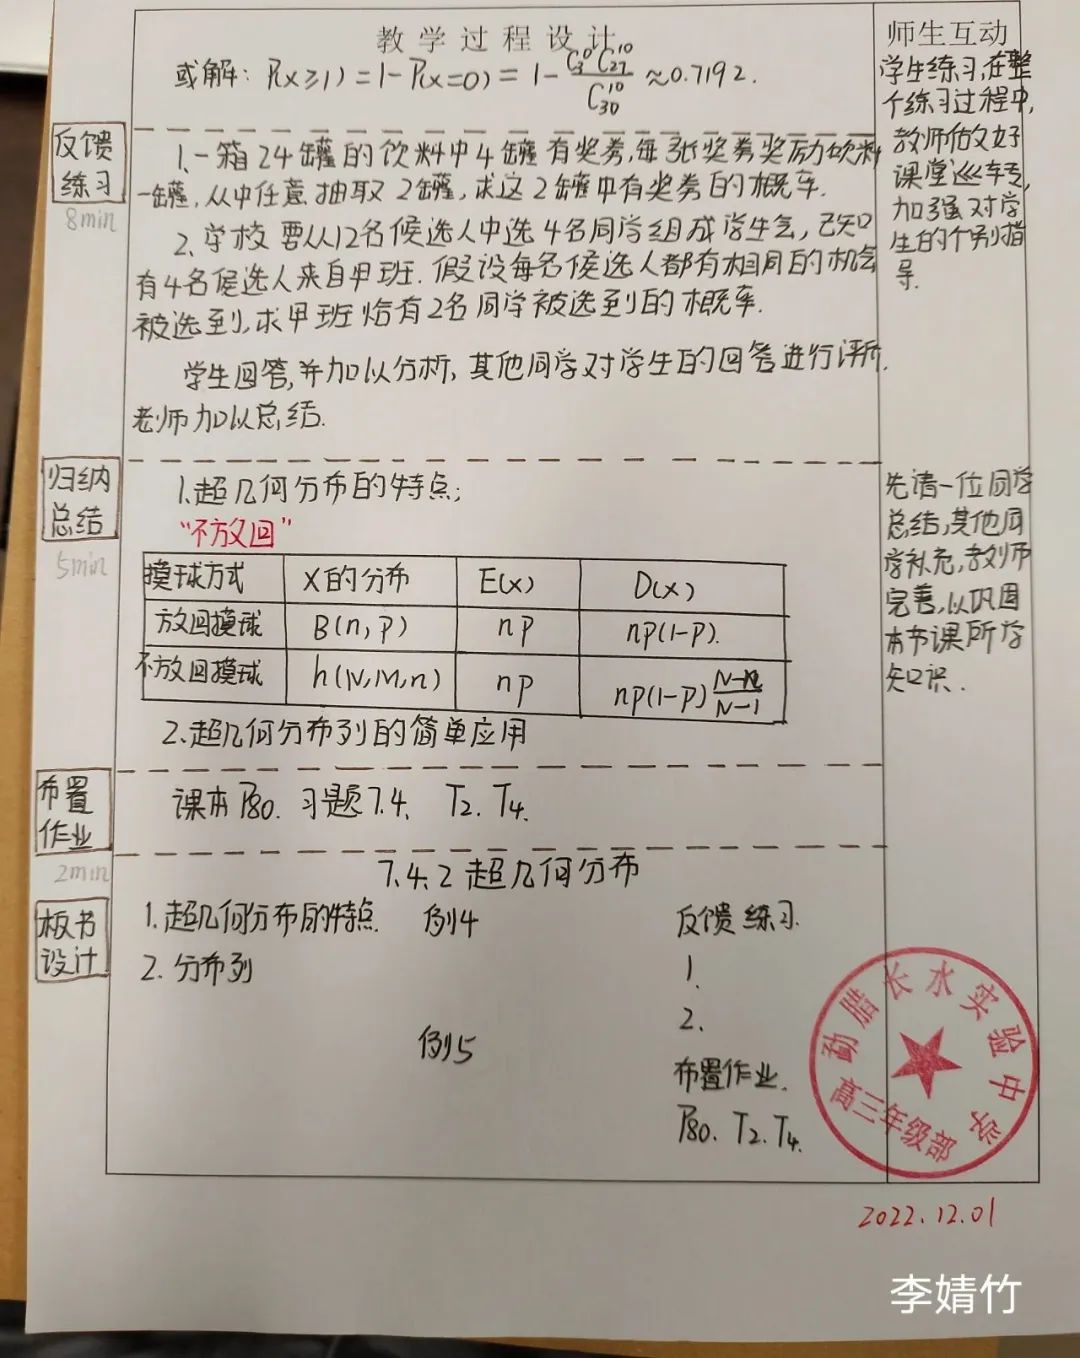 教学过程设计
师生互动
或解：P(X≥1)=1-P(X=0)=1-\frac{C_3^0 C_{27}^{10}}{C_{30}^{10}}≈0.7192.
学生练习，在整
个练习过程中，
教师做好
课堂巡转，
加强对学
生的个别指
导.
反馈
练习
8min
1.一箱24罐的饮料中4罐有奖券，每张奖券奖励饮料
一罐，从中任意抽取2罐，求这2罐中有奖券的概率.
2.学校要从12名候选人中选4名同学组成学生会，已知
有4名候选人来自甲班.假设每名候选人都有相同的机会
被选到，求甲班恰有2名同学被选到的概率.
学生回答，并加以分析，其他同学对学生的回答进行评析.
老师加以总结.
归纳
总结
5min
1.超几何分布的特点；
“不放回”
摸球方式 X的分布 E(X) D(X)
放回摸球 B(n,p) np np(1-p).
不放回摸球 h(N,M,n) np np(1-p)\frac{N-n}{N-1}
2.超几何分布列的简单应用
先请一位同学
总结，其他同
学补充，教师
完善，以巩固
本节课所学
知识.
布置
作业
2min
课本P80. 习题7.4. T2. T4.
板书
设计
7.4.2超几何分布
1.超几何分布的特点 例4 反馈练习.
2.分布列 1.
2.
例5
布置作业.
P80. T2. T4.
勐腊长水实验中学
高三年级部
2022.12.01
李婧竹